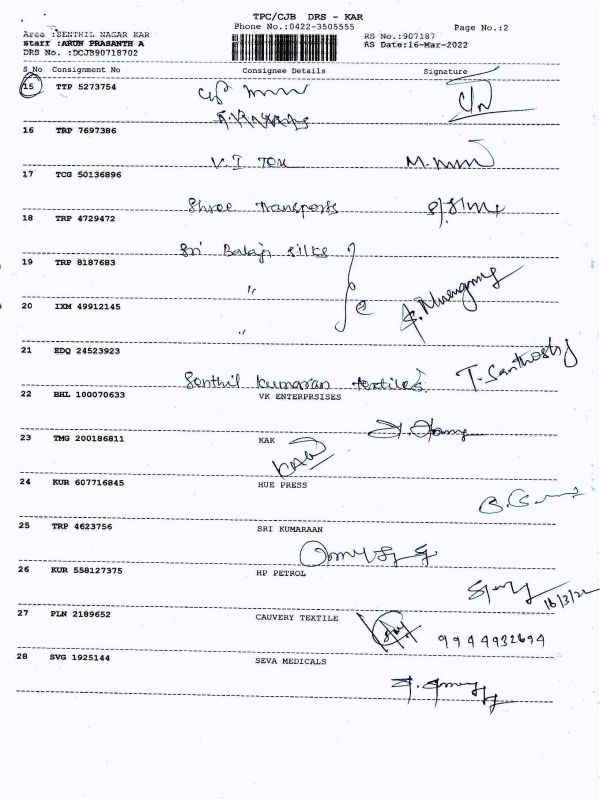 TPC/CJB DRS - KAR
Phone No.:0422-3505555
Page No.:2
Area :SENTHIL NAGAR KAR
Staff :ARUN PRASANTH A
DRS No. :DCJB90718702
RS No.:907187
RS Date:16-Mar-2022
S_No Consignment No Consignee Details Signature
15 TTP 5273754
16 TRP 7697386
V.I Tex
17 TCG 50136896
Shree Transports
18 TRP 4729472
Sri Balaji Silks
19 TRP 8187683
"
20 IXM 49912145
"
21 EDQ 24523923
Senthil kumaran textiles T. Santhosh
22 BHL 100070633 VK ENTERPRSISES
23 TMG 200186811 KAK
KAK
24 KUR 607716845 HUE PRESS
25 TRP 4623756 SRI KUMARAAN
26 KUR 558127375 HP PETROL
16/3/22
27 PLN 2189652 CAUVERY TEXTILE
9944932694
28 SVG 1925144 SEVA MEDICALS